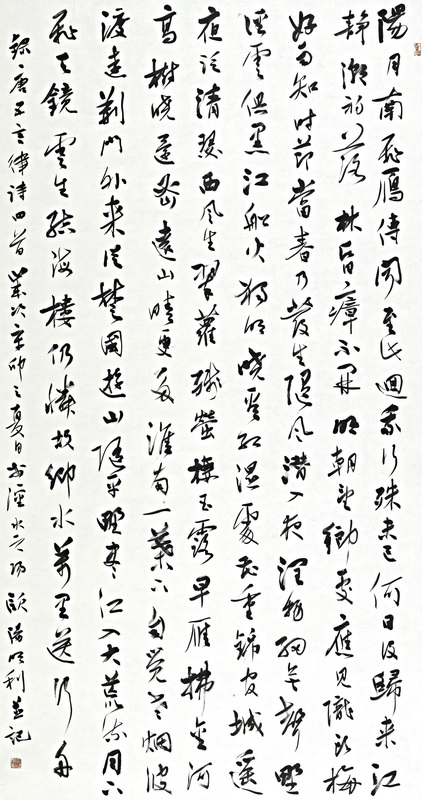 陽月南飛雁傳聞至此迴我行殊未已何日復歸來江
靜潮初落林昏瘴不開明朝望鄉處應見隴頭梅
好雨知時節當春乃發生隨風潛入夜潤物細無聲野
徑雲俱黑江船火獨明曉看紅濕處花重錦官城遙
夜泛清瑟西風生翠蘿殘螢棲玉露早雁拂金河
高樹曉還密遠山晴更多淮南一葉下自覺老烟波
渡遠荊門外來從楚國遊山隨平野盡江入大荒流月下
飛天鏡雲生結海樓仍憐故鄉水萬里送行舟
錄唐五言律詩四首歲次辛卯之夏日於水之歐陽順利並記